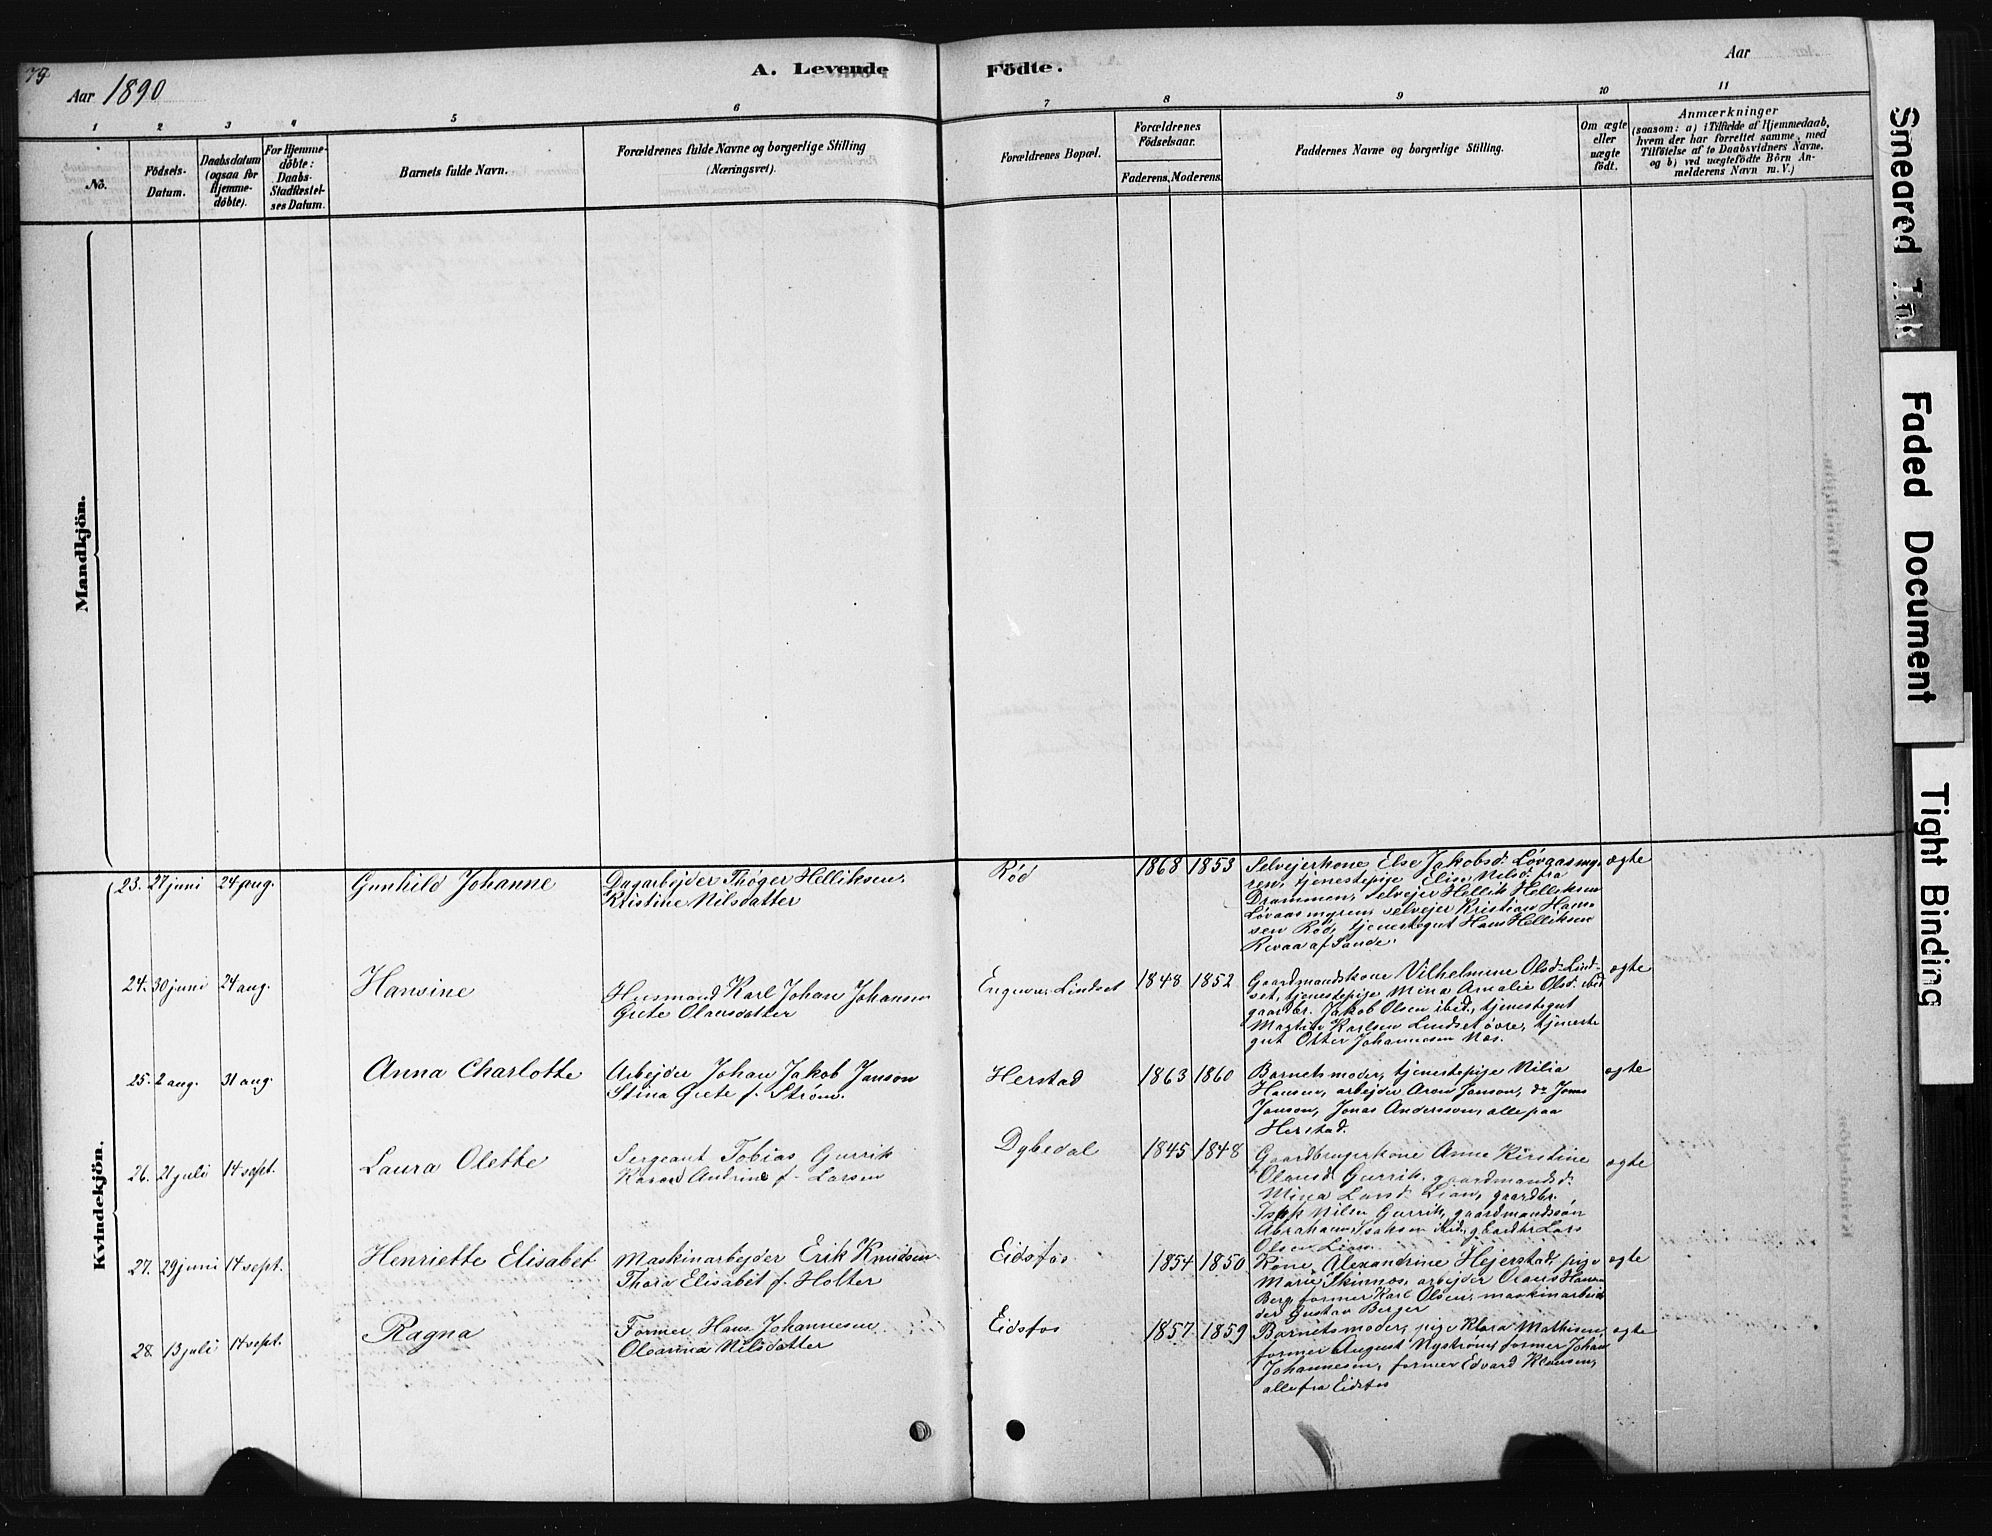 79
Aar 1890
A. Levende
Födte.
Aar
1 2 3 4 5 6 7 8 9 10 11
No.
Födsels-
Datum.
Daabsdatum
(ogsaa for
Hjemme-
döbte).
For Hjemme-
döbte:
Daabs-
Stadfæstel-
ses Datum.
Barnets fulde Navn.
Forældrenes fulde Navne og borgerlige Stilling
(Næringsvei).
Forældrenes Bopæl.
Forældrenes
Födselsaar.
Faderens. Moderens.
Faddernes Navne og borgerlige Stilling.
Om ægte
eller
uægte
født.
Anmærkninger
(saasom: a) i Tilfælde af Hjemmedaab,
hvem der har forrettet samme, med
Tilföielse af to Daabsvidners Navne,
og b) ved uægtefödte Börn An-
melderens Navn m. V.)
Mandkjön.
Kvindekjön.
23. 27 juni 24 aug. Gunhild Johanne
Dagarbejder Thøger Helliksen.
Kristine Nilsdatter
Rød 1868 1853
Selvejerkone Else Jakobsd. Løvaasmy-
ren, tjenestepige Elise Nilsd. fra
Drammen, selvejer Hellik Helliksen
Løvaasmyren, selvejer Kristian Han-
sen Rød, tjenestegut Hans Helliksen
Revaa af Sande.
ægte
24. 30 juni 24 aug. Hansine
Husmand Karl Johan Johansen
Grete Olausdatter
Lindset 1848 1852
Gaardmandskone Vilhelmine Olsd. Lind-
set, tjenestepige Mina Amalie Olsd. ibid
gaardbr. Jakob Olsen ibid., tjenestegut
Martin Karlsen Lindset øvre, tjeneste
gut Otter Johannesen Næs.
ægte
25. 2 aug. 31 aug. Anna Charlotte
Arbejder Johan Jakob Janson
Stina Grete f. Strøm.
Herstad 1863 1860
Barnets moder, tjenestepige Nilia
Hansen, arbejder Aron Janson, do Jons
Janson, Jonas Andersson, alle paa
Herstad.
ægte
26. 21 juli 14 sept. Laura Olette
Sergeant Tobias Gurrik
Karen Andrine f. Larsen
Dybedal 1845 1848
Gaardbrugerkone Anne Kirstine
Olausd. Gurrik, gaardmandsd.
Mina Larsd. Lian, gaardbr.
Isak Nilsen Gurrik, gaardmandssøn
Abraham Isaksen ibid., gaardbr Lars
Olsen Lian
ægte
27. 29 juni 14 sept. Henriette Elisabet
Maskinarbejder Erik Knudsen
Thora Elisabet f. Holter
Eidsfos 1854 1850
Kone Alexandrine Hejerstad, pige
Marie Skinnes, arbejder Olaus Hansen
Berg, former Karl Olsen, maskinarbei-
der Gustav Berger
ægte
28. 13 juli 14 sept. Ragna
Former Hans Johannesen
Olearina Nilsdatter
Eidsfos 1857 1859
Barnets moder, pige Klara Mathisen,
former August Nystrøm, former Johan
Johannesen, former Edvard Klausen,
alle fra Eidsfos
ægte
Smeared Ink
Faded Document
Tight Binding